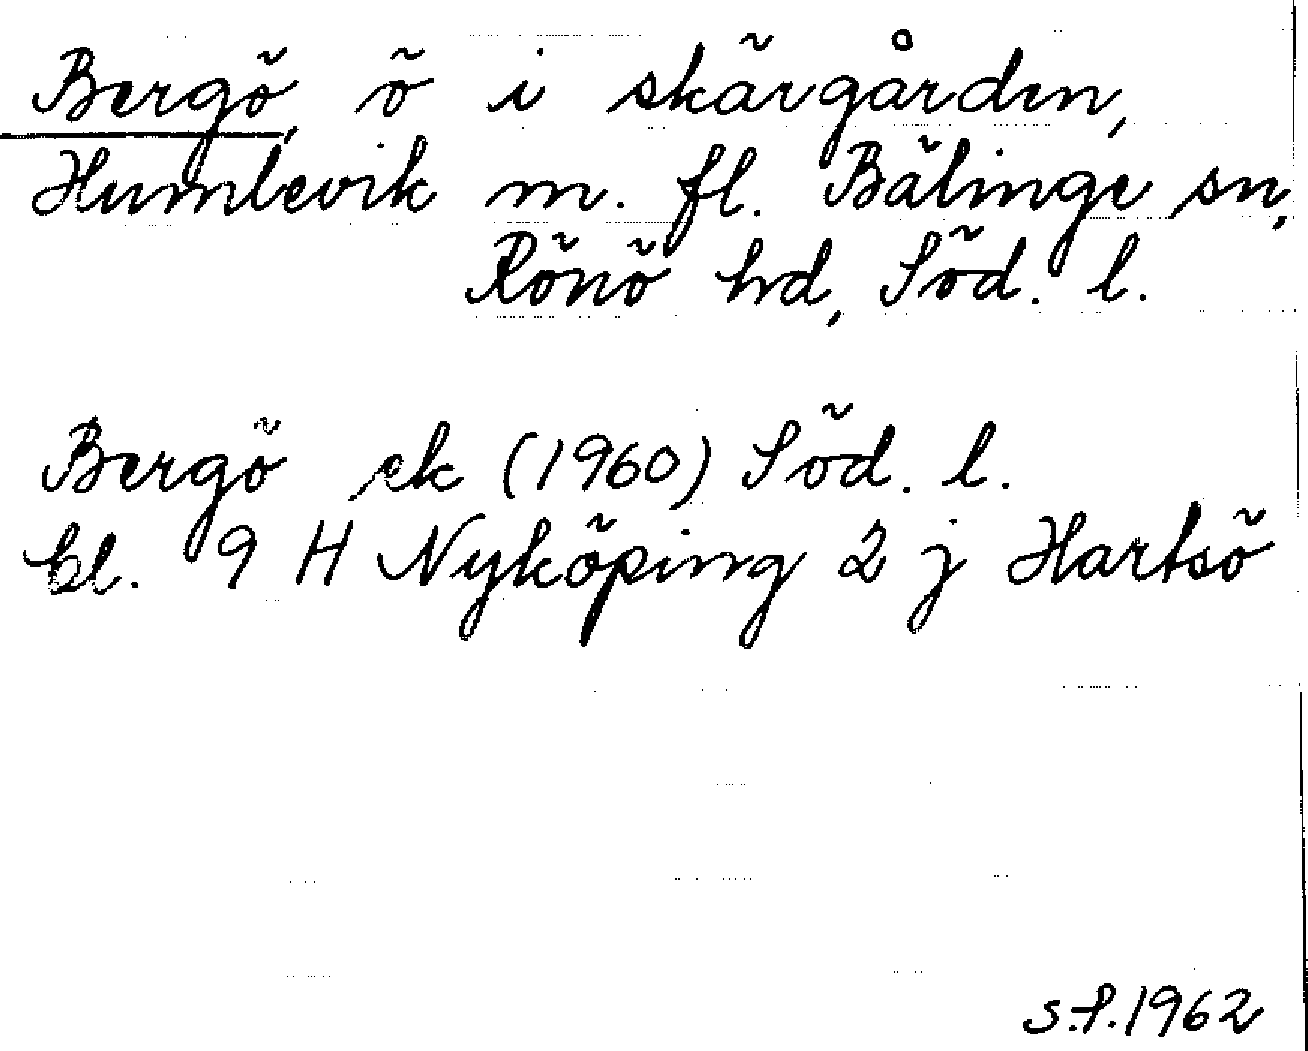 Bergö, ö i skärgården,
Humlevik m. fl. Bälinge sn,
Rönö hd, Söd. l.
Bergö ek (1960) Söd. l.
bl. 9 H Nyköping 2 j Hartsö
s.f. 1962